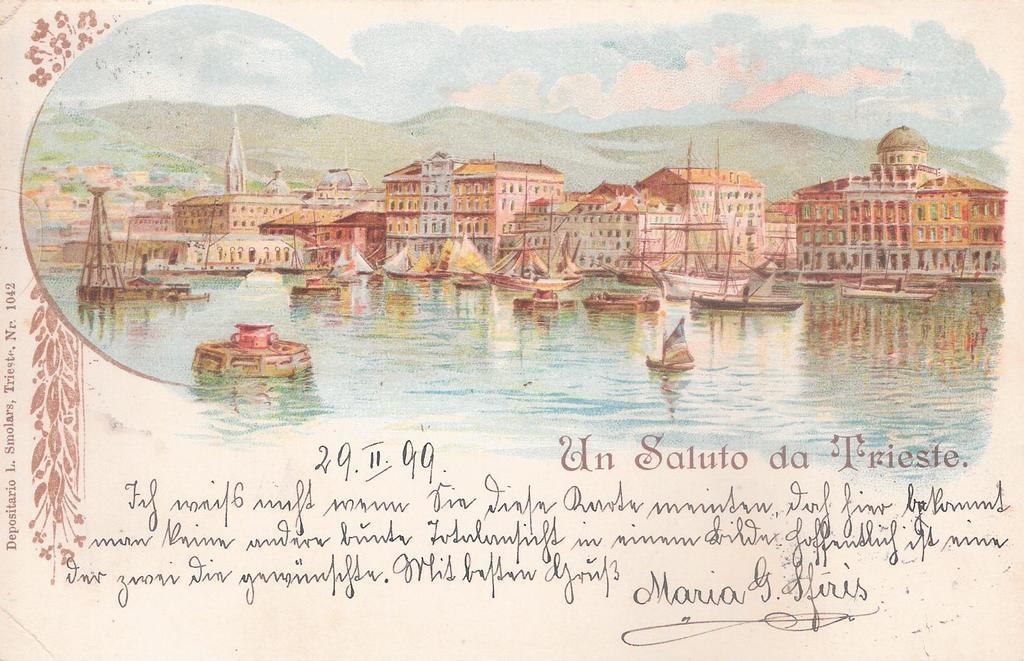 Un Saluto da Trieste.
29. II. 99.
Ich weiß nicht wenn Sie diese Karte meinten, doch hier bekommt
man keine andere bunte Totalansicht in einem Bilde hoffentlich ist eine
der zwei die gewünschte. Mit besten Gruß
Maria G. Sfiris
Depositario L. Smolars, Trieste. Nr. 1042